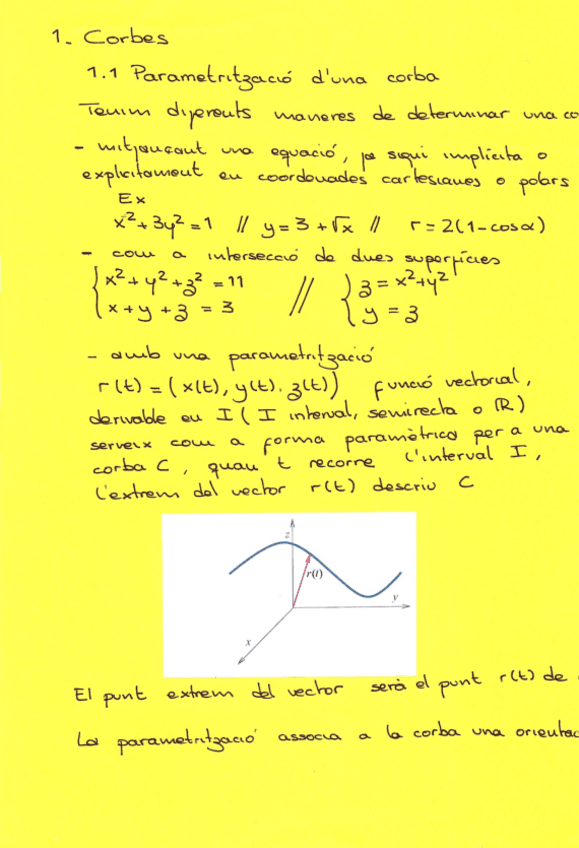 1. Corbes
1.1 Parametrització d'una corba
Tenim diferents maneres de determinar una co
- mitjançant una equació, ja sigui implícita o
explícitament en coordenades cartesianes o polars
Ex
x²+3y²=1 // y=3+√x // r=2(1-cosα)
- com a intersecció de dues superfícies
{ x²+y²+z²=11 // { z=x²+y²
x+y+z=3 y=z
- amb una parametrització
r(t)=(x(t),y(t).z(t)) funció vectorial,
derivable en I (I interval, semirecta o ℝ)
serveix com a forma paramètrica per a una
corba C, quan t recorre l'interval I,
l'extrem del vector r(t) descriu C
z
r(t)
y
x
El punt extrem del vector serà el punt r(t) de
La parametrització associa a la corba una orientac